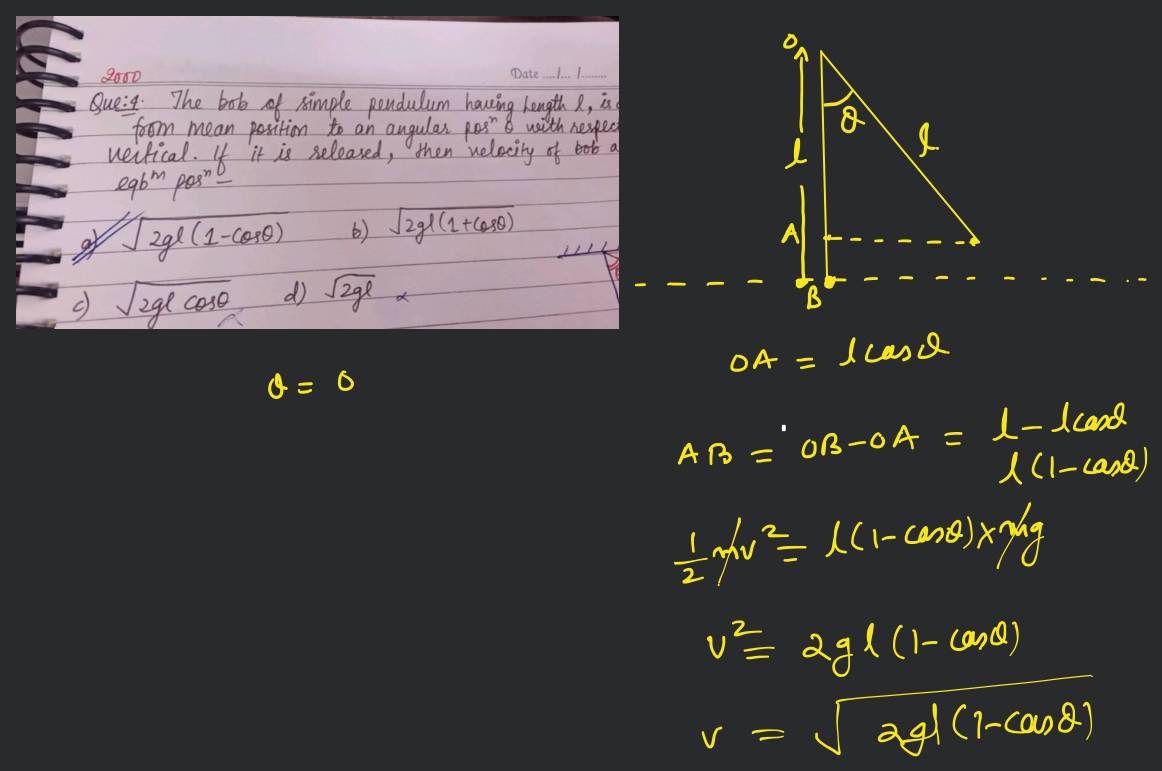 2000
Date ..../.... /........
Que:1. The bob of simple pendulum having length l, is
from mean position to an angular posⁿ θ with respec
vertical. If it is released, then velocity of bob a
eqbᵐ posⁿ
a) √2gl(1-cosθ) b) √2gl(1+cosθ)
c) √2gl cosθ d) √2gl
θ = 0
O
θ
l
l
A
B
OA = l cosθ
AB = OB-OA = l - lcosθ
l(1-cosθ)
1/2 mv² = l(1-cosθ)×mg
v² = 2gl(1-cosθ)
v = √2gl(1-cosθ)